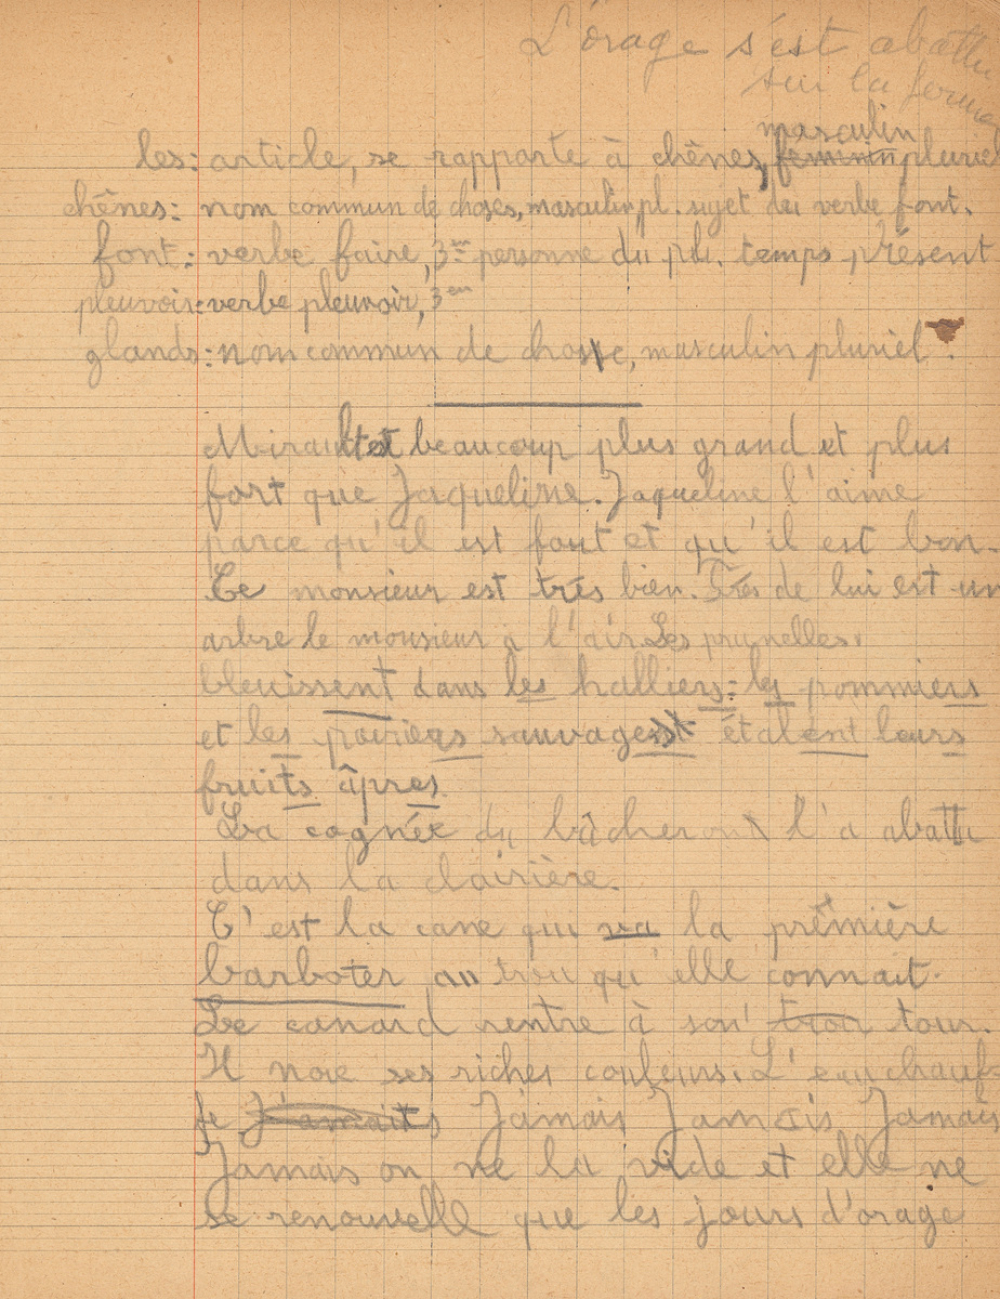 L'orage s'est abattu
sur la ferme
masculin
les: article, se rapporte à chênes, féminin pluriel
chênes: nom commun de choses, masculin pl. sujet du verbe font.
font: verbe faire, 3em personne du plu. temps présent
pleuvoir: verbe pleuvoir, 3em
glands: nom commun de chose, masculin pluriel.
Mirault est beaucoup plus grand et plus
fort que Jaqueline. Jaqueline l'aime
parce qu'il est fort et qu'il est bon.
Ce monsieur est très bien. Près de lui est un
arbre le monsieur à l'air. Les prunelles.
bleuissent dans les halliers: les pommiers
et les poiriers sauvages étalent leurs
fruits âpres.
La cognée du bûcheron l'a abattu
dans la clairière.
C'est la cane qui va la première
barboter au trou qu'elle connait.
Le canard rentre à son trou tour.
Il noie ses riches couleurs. L'eau chauf-
fe J'amaits Jamais Jamais Jamais
Jamais on ne la vide et elle ne
se renouvelle que les jours d'orage